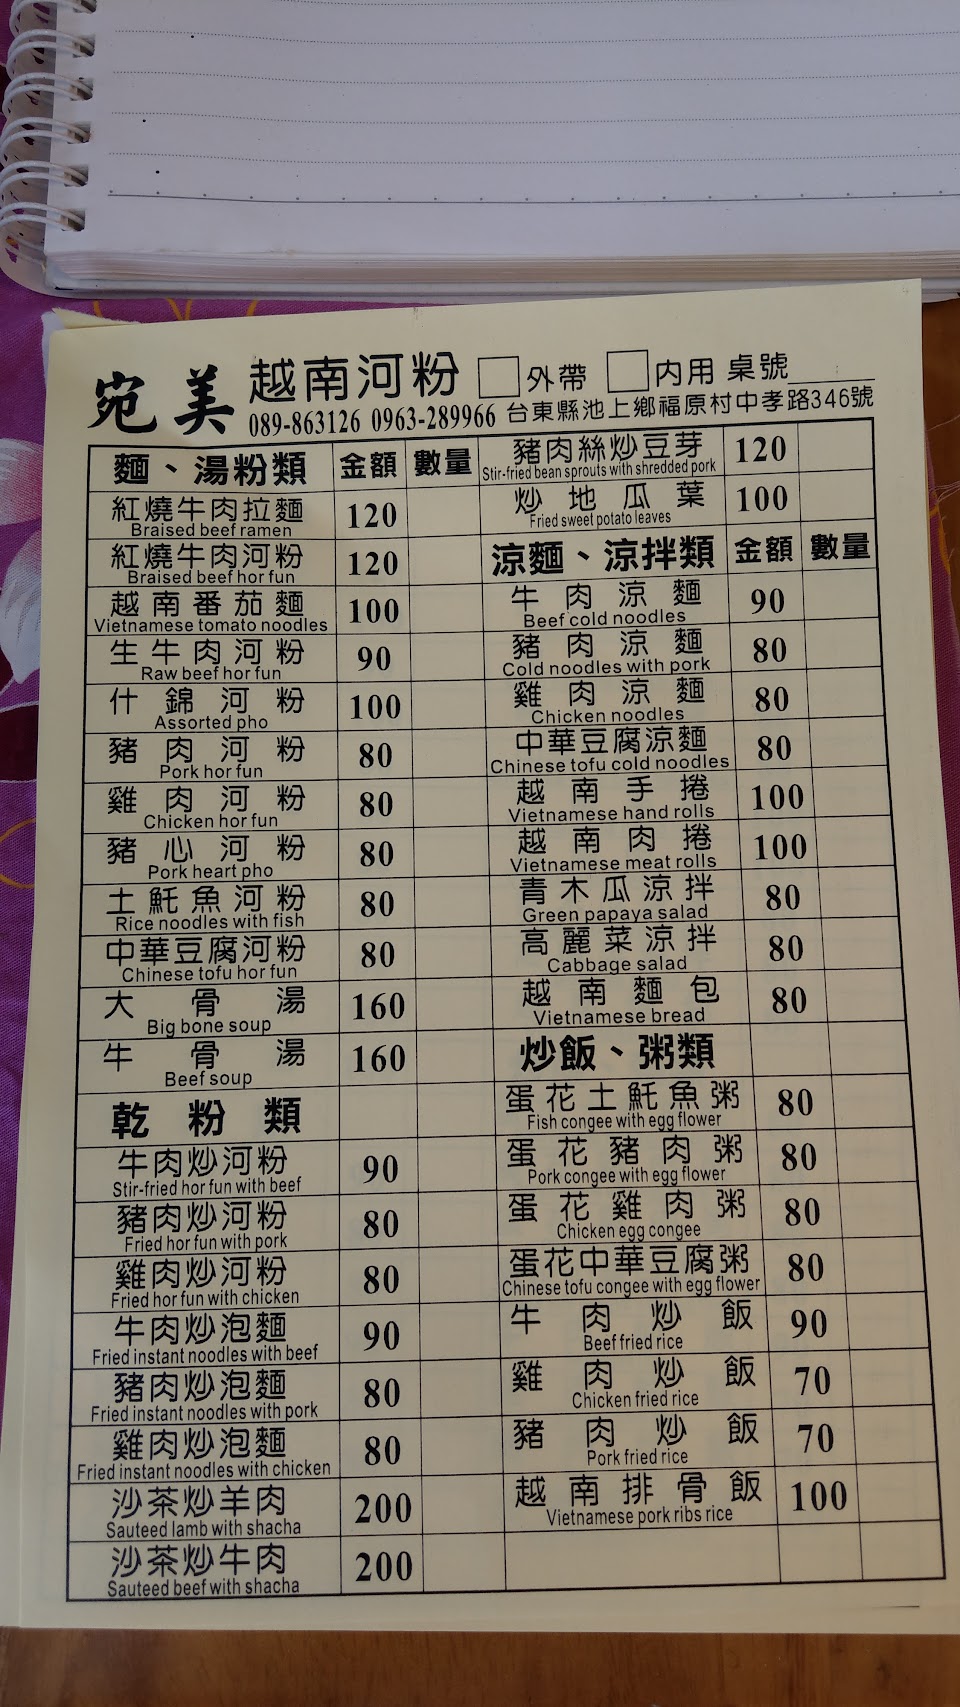 宛美 越南河粉 外帶 內用 桌號
089-863126 0963-289966 台東縣池上鄉福原村中孝路346號
麵、湯粉類 金額 數量
紅燒牛肉拉麵 120
Braised beef ramen
紅燒牛肉河粉 120
Braised beef hor fun
越南番茄麵 100
Vietnamese tomato noodles
生牛肉河粉 90
Raw beef hor fun
什錦河粉 100
Assorted pho
豬肉河粉 80
Pork hor fun
雞肉河粉 80
Chicken hor fun
豬心河粉 80
Pork heart pho
土魠魚河粉 80
Rice noodles with fish
中華豆腐河粉 80
Chinese tofu hor fun
大骨湯 160
Big bone soup
牛骨湯 160
Beef soup
乾粉類
牛肉炒河粉 90
Stir-fried hor fun with beef
豬肉炒河粉 80
Fried hor fun with pork
雞肉炒河粉 80
Fried hor fun with chicken
牛肉炒泡麵 90
Fried instant noodles with beef
豬肉炒泡麵 80
Fried instant noodles with pork
雞肉炒泡麵 80
Fried instant noodles with chicken
沙茶炒羊肉 200
Sauteed lamb with shacha
沙茶炒牛肉 200
Sauteed beef with shacha
豬肉絲炒豆芽 120
Stir-fried bean sprouts with shredded pork
炒地瓜葉 100
Fried sweet potato leaves
涼麵、涼拌類 金額 數量
牛肉涼麵 90
Beef cold noodles
豬肉涼麵 80
Cold noodles with pork
雞肉涼麵 80
Chicken noodles
中華豆腐涼麵 80
Chinese tofu cold noodles
越南手捲 100
Vietnamese hand rolls
越南肉捲 100
Vietnamese meat rolls
青木瓜涼拌 80
Green papaya salad
高麗菜涼拌 80
Cabbage salad
越南麵包 80
Vietnamese bread
炒飯、粥類
蛋花土魠魚粥 80
Fish congee with egg flower
蛋花豬肉粥 80
Pork congee with egg flower
蛋花雞肉粥 80
Chicken egg congee
蛋花中華豆腐粥 80
Chinese tofu congee with egg flower
牛肉炒飯 90
Beef fried rice
雞肉炒飯 70
Chicken fried rice
豬肉炒飯 70
Pork fried rice
越南排骨飯 100
Vietnamese pork ribs rice